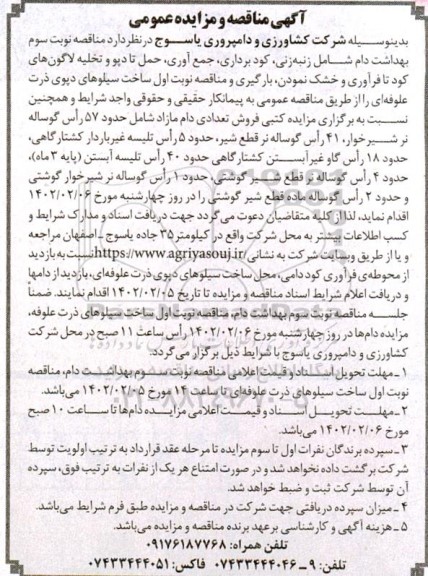 آگهی مناقصه و مزایده عمومی
بدینوسیله شرکت کشاورزی و دامپروری یاسوج در نظر دارد مناقصه نوبت سوم
بهداشت دام شامل زنبه‌زنی، کود برداری، جمع آوری، حمل تا دپو و تخلیه لاگون‌های
کود تا فرآوری و خشک نمودن، بارگیری و مناقصه نوبت اول ساخت سیلوهای دپوی ذرت
علوفه‌ای را از طریق مناقصه عمومی به پیمانکار حقیقی و حقوقی واجد شرایط و همچنین
نسبت به برگزاری مزایده کتبی فروش تعدادی دام مازاد شامل حدود ۵۷ رأس گوساله
نر شیرخوار، ۴۱ رأس گوساله نر قطع شیر، حدود ۵ رأس تلیسه غیرباردار کشتارگاهی،
حدود ۱۸ رأس گاو غیرآبستن کشتارگاهی حدود ۴۰ رأس تلیسه آبستن (پایه ۳ماه)،
حدود ۴ رأس گوساله نر قطع شیر گوشتی، حدود ۱ رأس گوساله نر شیرخوار گوشتی
و حدود ۲ رأس گوساله ماده قطع شیر گوشتی را در روز چهارشنبه مورخ ۱۴۰۲/۰۲/۰۶
اقدام نماید، لذا از کلیه متقاضیان دعوت می‌گردد جهت دریافت اسناد و مدارک شرایط و
کسب اطلاعات بیشتر به محل شرکت واقع در کیلومتر ۳۵ جاده یاسوج ـ اصفهان مراجعه
و یا از طریق وبسایت شرکت به نشانی https://www.agriyasouj.ir نسبت به بازدید
از محوطه‌ی فرآوری کود دامی، محل ساخت سیلوهای دپوی ذرت علوفه‌ای، بازدید از دامها
و دریافت اعلام شرایط اسناد مناقصه و مزایده تا تاریخ ۱۴۰۲/۰۲/۰۵ اقدام نمایند. ضمناً
جلسه مناقصه نوبت سوم بهداشت دام، مناقصه نوبت اول ساخت سیلوهای ذرت علوفه‌ای،
مزایده دام‌ها در روز چهارشنبه مورخ ۱۴۰۲/۰۲/۰۶ رأس ساعت ۱۱ صبح در محل شرکت
کشاورزی و دامپروری یاسوج با شرایط ذیل برگزار می‌گردد.
۱ـ مهلت تحویل اسناد و قیمت اعلامی مناقصه نوبت سوم بهداشت دام، مناقصه
نوبت اول ساخت سیلوهای ذرت علوفه‌ای تا ساعت ۱۴ مورخ ۱۴۰۲/۰۲/۰۵ می‌باشد.
۲ـ مهلت تحویل اسناد و قیمت اعلامی مزایده دام‌ها تا ساعت ۱۰ صبح
مورخ ۱۴۰۲/۰۲/۰۶ می‌باشد.
۳ـ سپرده برندگان نفرات اول تا سوم مزایده تا مرحله عقد قرارداد به ترتیب اولویت توسط
شرکت برگشت داده نخواهد شد و در صورت امتناع هر یک از نفرات به ترتیب فوق، سپرده
آن توسط شرکت ثبت و ضبط خواهد شد.
۴ـ میزان سپرده دریافتی جهت شرکت در مناقصه و مزایده طبق فرم شرایط می‌باشد.
۵ـ هزینه آگهی و کارشناسی بر عهد برنده مناقصه و مزایده می‌باشد.
تلفن همراه: ۰۹۱۷۶۱۸۷۷۶۸
تلفن: ۹ـ۰۷۴۳۳۴۴۴۰۴۶ فاکس: ۰۷۴۳۳۴۴۴۰۵۱